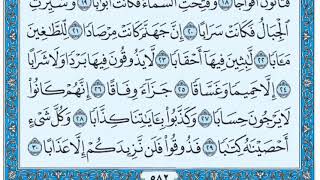 فَتَأْتُونَ أَفْوَاجًا ١٨ وَفُتِحَتِ السَّمَاءُ فَكَانَتْ أَبْوَابًا ١٩ وَسُيِّرَتِ
الْجِبَالُ فَكَانَتْ سَرَابًا ٢٠ إِنَّ جَهَنَّمَ كَانَتْ مِرْصَادًا ٢١ لِّلطَّٰغِينَ
مَـَٔابًا ٢٢ لَّٰبِثِينَ فِيهَآ أَحْقَابًا ٢٣ لَّا يَذُوقُونَ فِيهَا بَرْدًا وَلَا شَرَابًا
٢٤ إِلَّا حَمِيمًا وَغَسَّاقًا ٢٥ جَزَآءً وِفَاقًا ٢٦ إِنَّهُمْ كَانُوا۟
لَا يَرْجُونَ حِسَابًا ٢٧ وَكَذَّبُوا۟ بِـَٔايَٰتِنَا كِذَّابًا ٢٨ وَكُلَّ شَىْءٍ
أَحْصَيْنَٰهُ كِتَٰبًا ٢٩ فَذُوقُوا۟ فَلَن نَّزِيدَكُمْ إِلَّا عَذَابًا ٣٠
٥٨٢